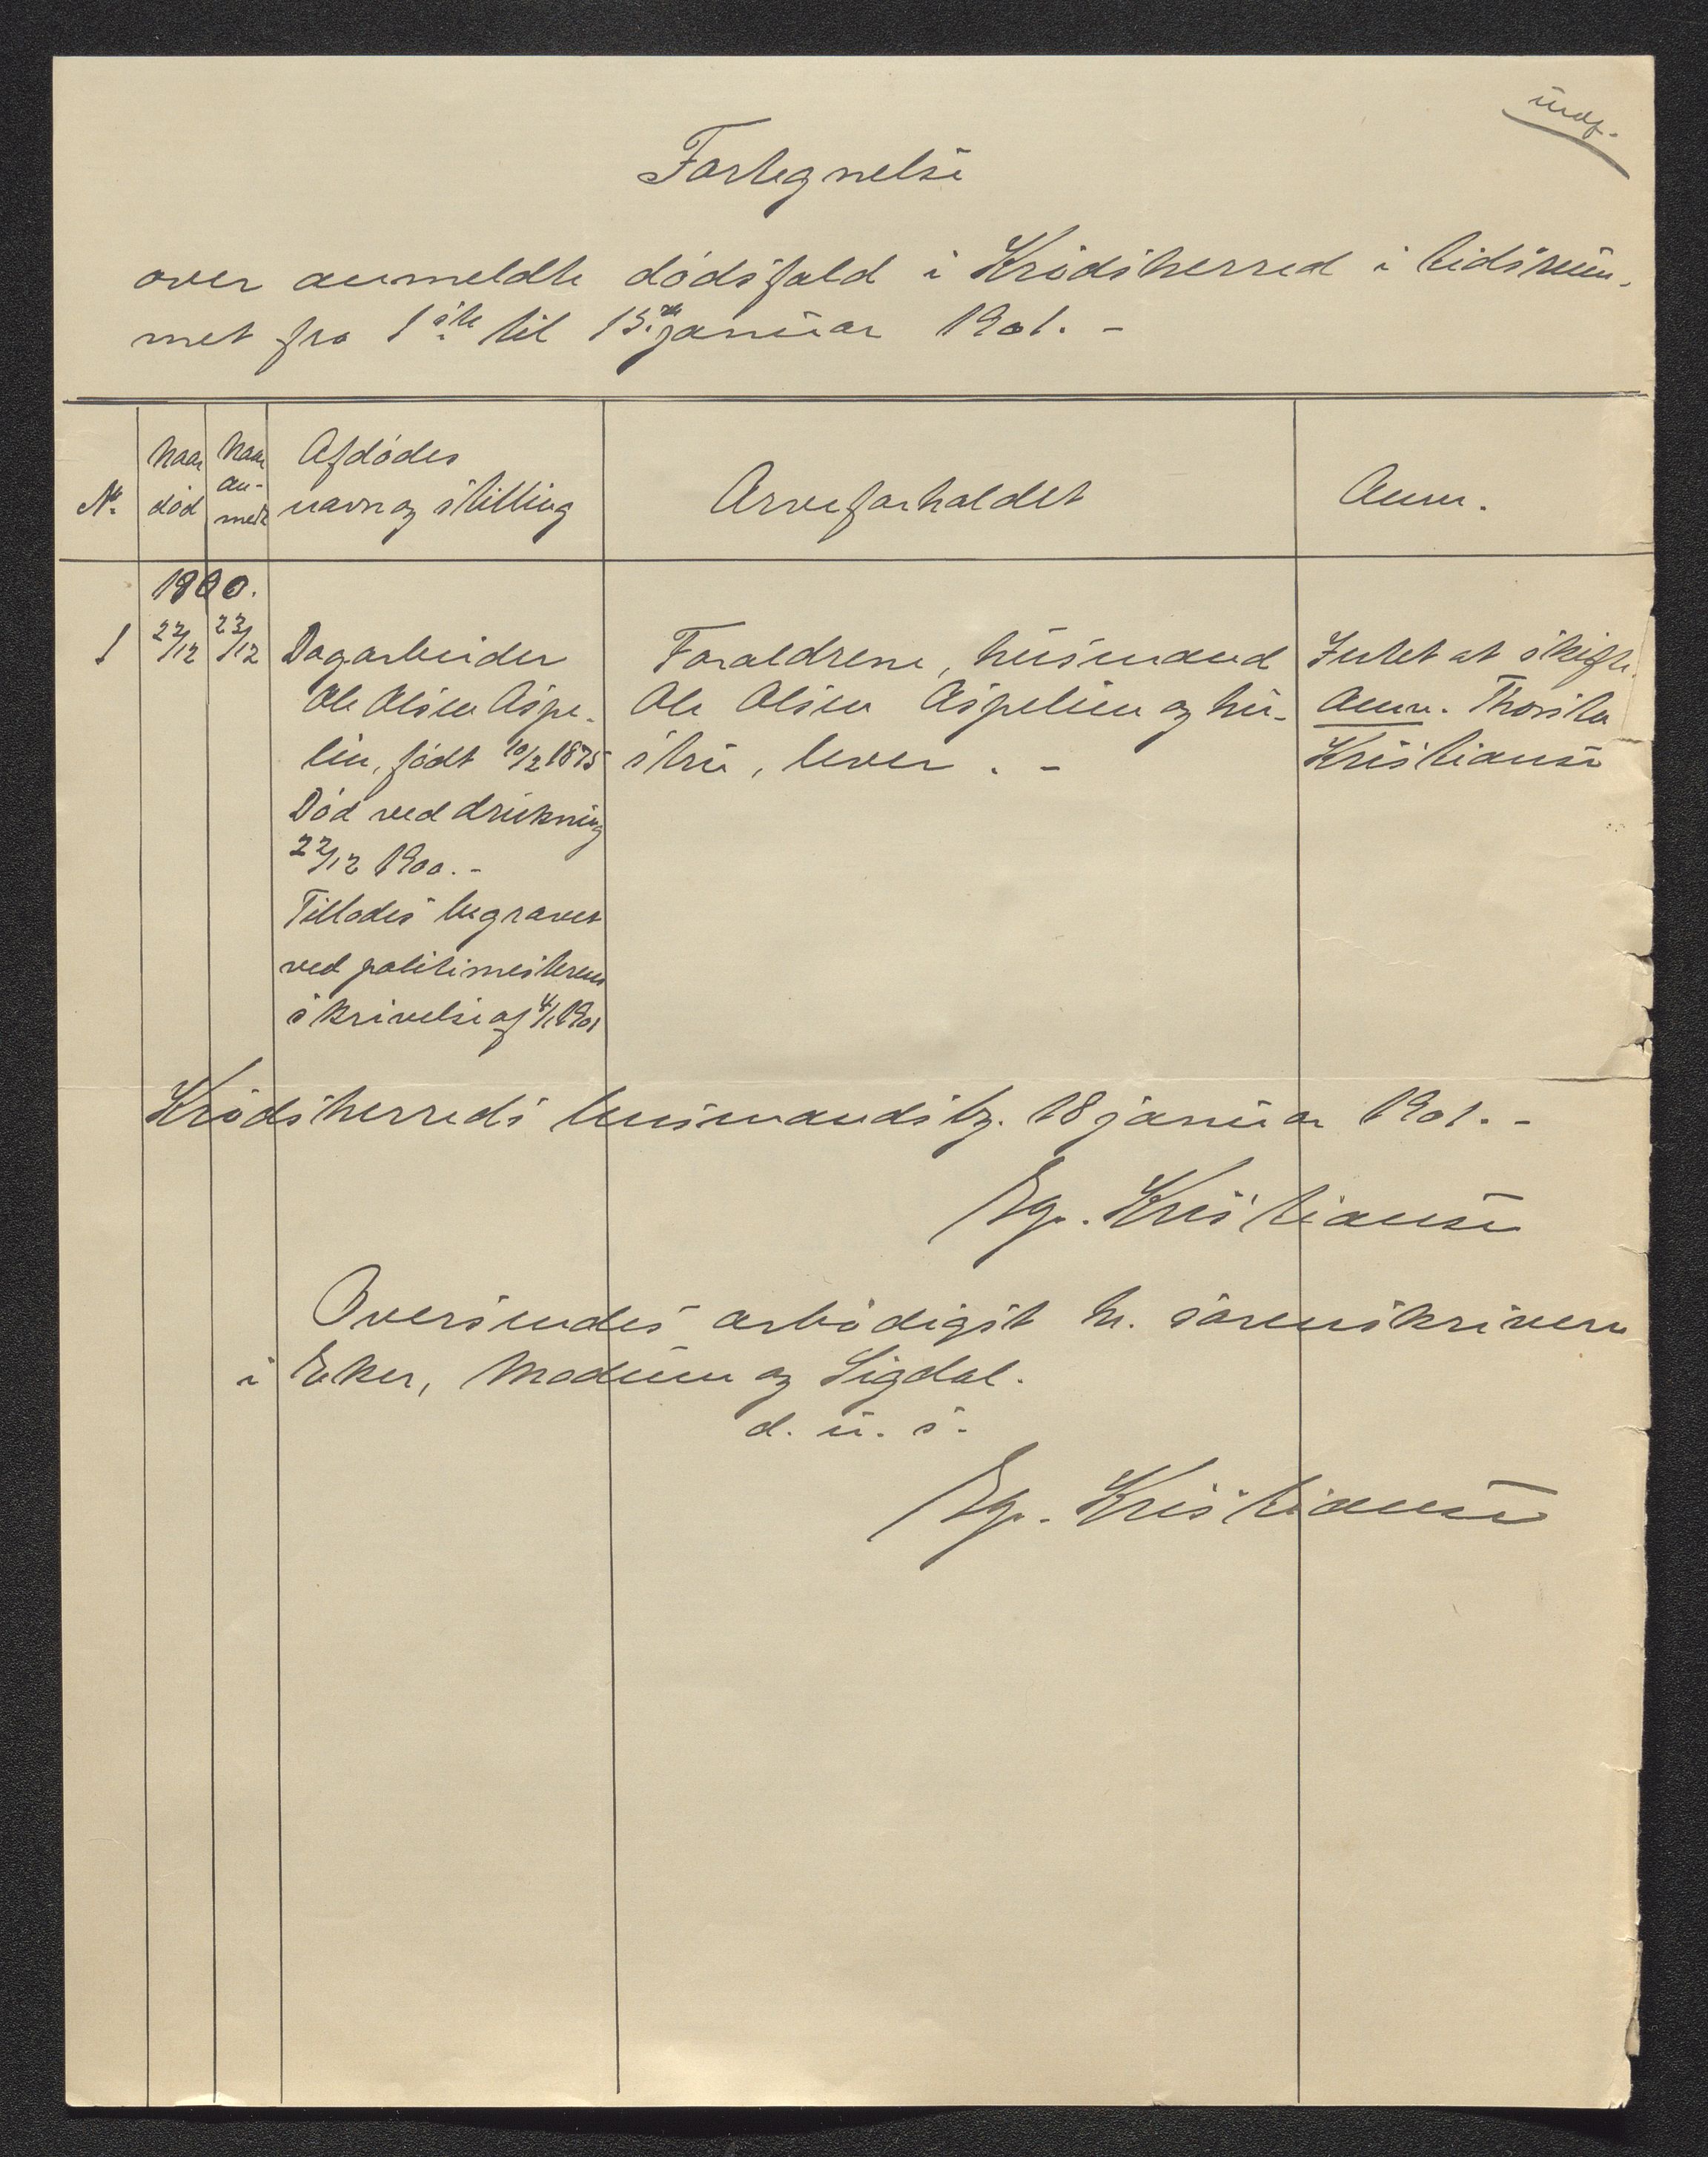 indf.
Fortegnelse
over anmeldte dødsfald i Krødsherred i tidsrum-
met fra 1ste til 15de januar 1901. -
No.
Naar død
Naar an-meldt
Afdødes
navn og stilling
Arveforholdet
Anm.
1900.
1 22/12 23/12 Dagarbeider Foreldrene, husmand Intet at skifte.
Ole Olsen Aspe- Ole Olsen Aspelien og hu- Anm. Thorsten
lien, født 10/2 1875 stru, lever. - Kristiansen
Død ved drukning
22/12 1900. -
Tillodes begravet
ved politimesterens
skrivelse af 4/1 1901
Krødsherreds lensmandsbg. 18 januar 1901. -
Eg. Kristiansen
Oversendes ærbødigst hr. sorenskriveren
i Eker, Modum og Sigdal.
d. u. s.
Eg. Kristiansen